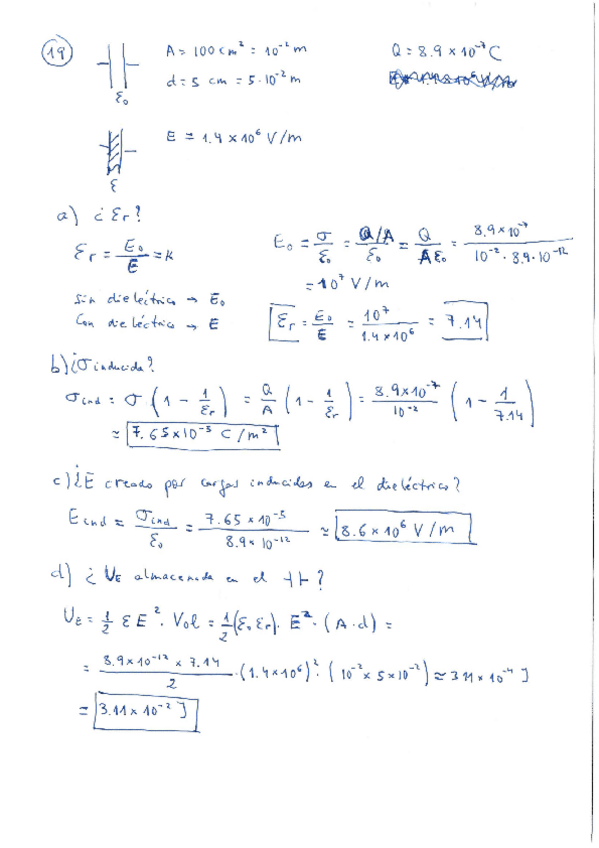 19
A = 100 cm² = 10⁻² m Q = 8.9 × 10⁻⁷ C
d = 5 cm = 5·10⁻² m
ε₀
E = 1.4 × 10⁶ V/m
ε
a) ¿ εr?
εr = E₀/E = K E₀ = σ/ε₀ = (Q/A)/ε₀ = Q/(A ε₀) = 8.9×10⁻⁷/(10⁻² · 8.9·10⁻¹²)
= 10⁷ V/m
Sin dieléctrico → E₀
Con dieléctrico → E
εr = E₀/E = 10⁷/(1.4 × 10⁶) = 7.14
b) ¿σ inducida?
σind = σ (1 - 1/εr) = Q/A (1 - 1/εr) = 8.9×10⁻⁷/10⁻² (1 - 1/7.14)
≃ 7.65×10⁻⁵ C/m²
c) ¿E creado por cargas inducidas en el dieléctrico?
Eind = σind/ε₀ = 7.65 × 10⁻⁵/(8.9×10⁻¹²) ≃ 8.6×10⁶ V/m
d) ¿ UE almacenada en el ⊣⊢ ?
UE = 1/2 ε E² · Vol = 1/2 (ε₀ εr) · E² · (A·d) =
= (8.9×10⁻¹² × 7.14)/2 · (1.4×10⁶)² · (10⁻² × 5×10⁻²) ≃ 311 × 10⁻⁴ J
= 3.11 × 10⁻² J